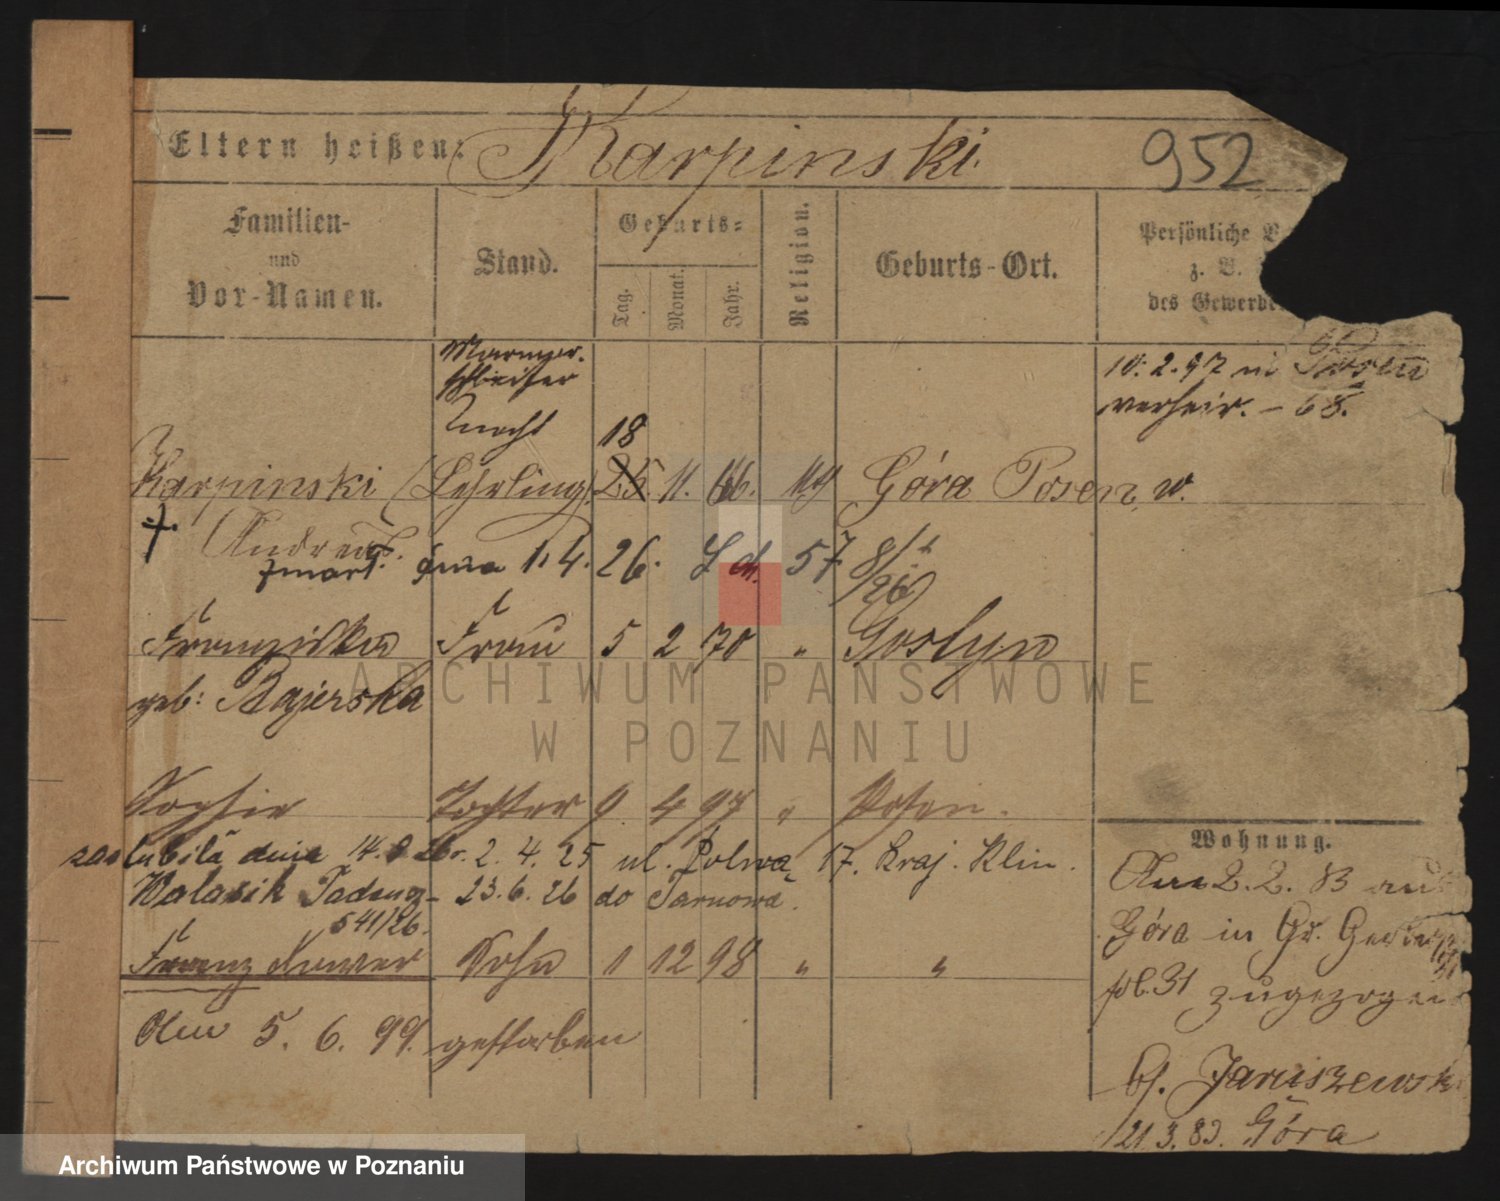 Eltern heißen: Karpinski. 952
Familien- und Vor-Namen.
Stand.
Geburts-
Tag. Monat. Jahr.
Religion.
Geburts-Ort.
Persönliche
z. B.
des Gewerbe
Marmor-
schleifer
Knecht 18
10. 2. 97 in Posen
verheir. - 68.
Karpinski (Lehrling) 25. 11. 66. Góra Posen w.
†. Andreas.
zmarł. dnia 1. 4. 26. 57 8/
26
Franziska Frau 5 2 70 " Gostyn
geb: Bajerska
Sophie Tochter 9. 4 97 " Posen.
zaślubiła dnia 2. 4. 25 ul. Polna 17. Kraj. Klin.
Walasik Tadeusz - 23. 6. 26 do Tarnowa.
541/26.
Franz Sohn 1 12 98 " "
Am 5. 6. 99. gestorben
Wohnung.
Am 2. 2. 83 aus
Góra in Gr.
31 zugezogen
bf. Januszewsk
21. 3. 83. Góra
ARCHIWUM PAŃSTWOWE
W POZNANIU
Archiwum Państwowe w Poznaniu